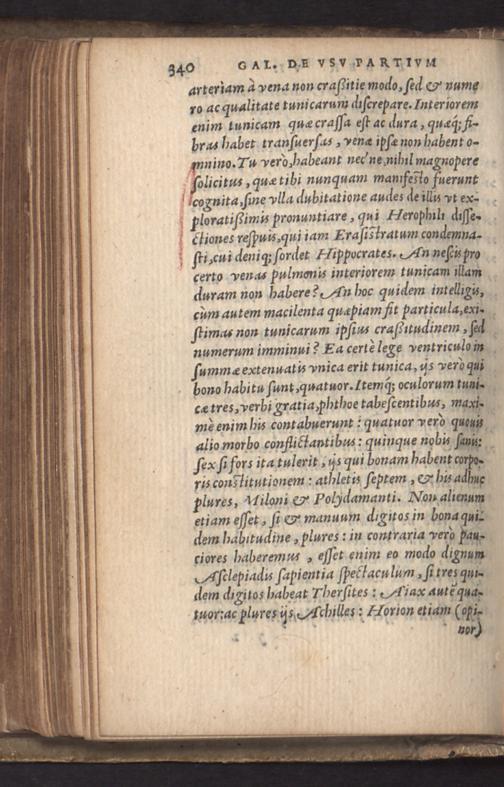 340 GAL. DE VSV PARTIVM
arteriam à vena non craßitie modo, sed & nume
ro ac qualitate tunicarum discrepare. Interiorem
enim tunicam quæ crassa est ac dura, quæq; fi-
bras habet transuersas, venæ ipsæ non habent o-
mnino. Tu verò, habeant nec'ne, nihil magnopere
solicitus, quæ tibi nunquam manifesto fuerunt
cognita, sine vlla dubitatione audes de illis vt ex-
ploratißimis pronuntiare, qui Herophili disse-
ctiones respuis, qui iam Erasistratum condemna-
sti, cui deniq; sordet Hippocrates. An nescis pro
certo venas pulmonis interiorem tunicam illam
duram non habere? An hoc quidem intelligis,
cùm autem macilenta quæpiam fit particula, exi-
stimas non tunicarum ipsius craßitudinem, sed
numerum imminui? Ea certè lege ventriculo in
summæ extenuatis vnica erit tunica, ijs verò qui
bono habitu sunt, quatuor. Itemq; oculorum tuni-
cæ tres, verbi gratia, phthoe tabescentibus, maxi-
mè enim his contabuerunt: quatuor verò quouis
alio morbo conflictantibus: quinque nobis sanis:
sex si fors ita tulerit, ijs qui bonam habent corpo-
ris constitutionem: athletis septem, & his adhuc
plures, Miloni & Polydamanti. Non alienum
etiam esset, si & manuum digitos in bona qui-
dem habitudine, plures: in contraria verò pau-
ciores haberemus, esset enim eo modo dignum
Asclepiadis sapientia spectaculum, si tres qui-
dem digitos habeat Thersites: Aiax autē qua-
tuor: ac plures ijs Achilles: Horion etiam (opi-
nor)